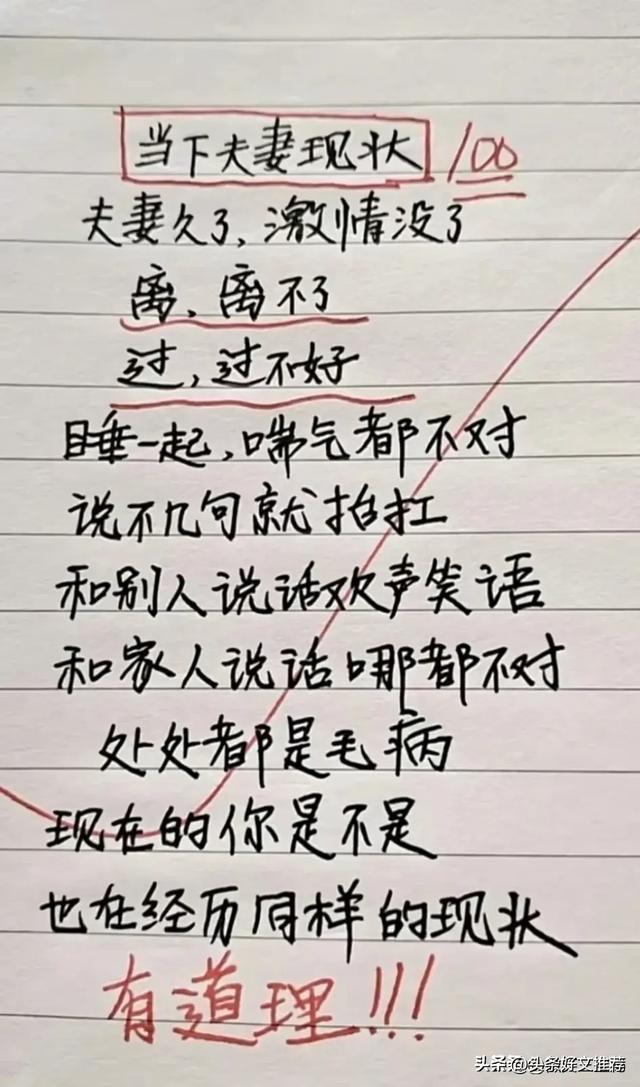 当下夫妻现状 100
夫妻久了,激情没了
离、离不了
过,过不好
睡一起,喘气都不对
说不几句就抬扛
和别人说话欢声笑语
和家人说话哪都不对
处处都是毛病
现在的你是不是
也在经历同样的现状
有道理!!!
头条@头条好文推荐